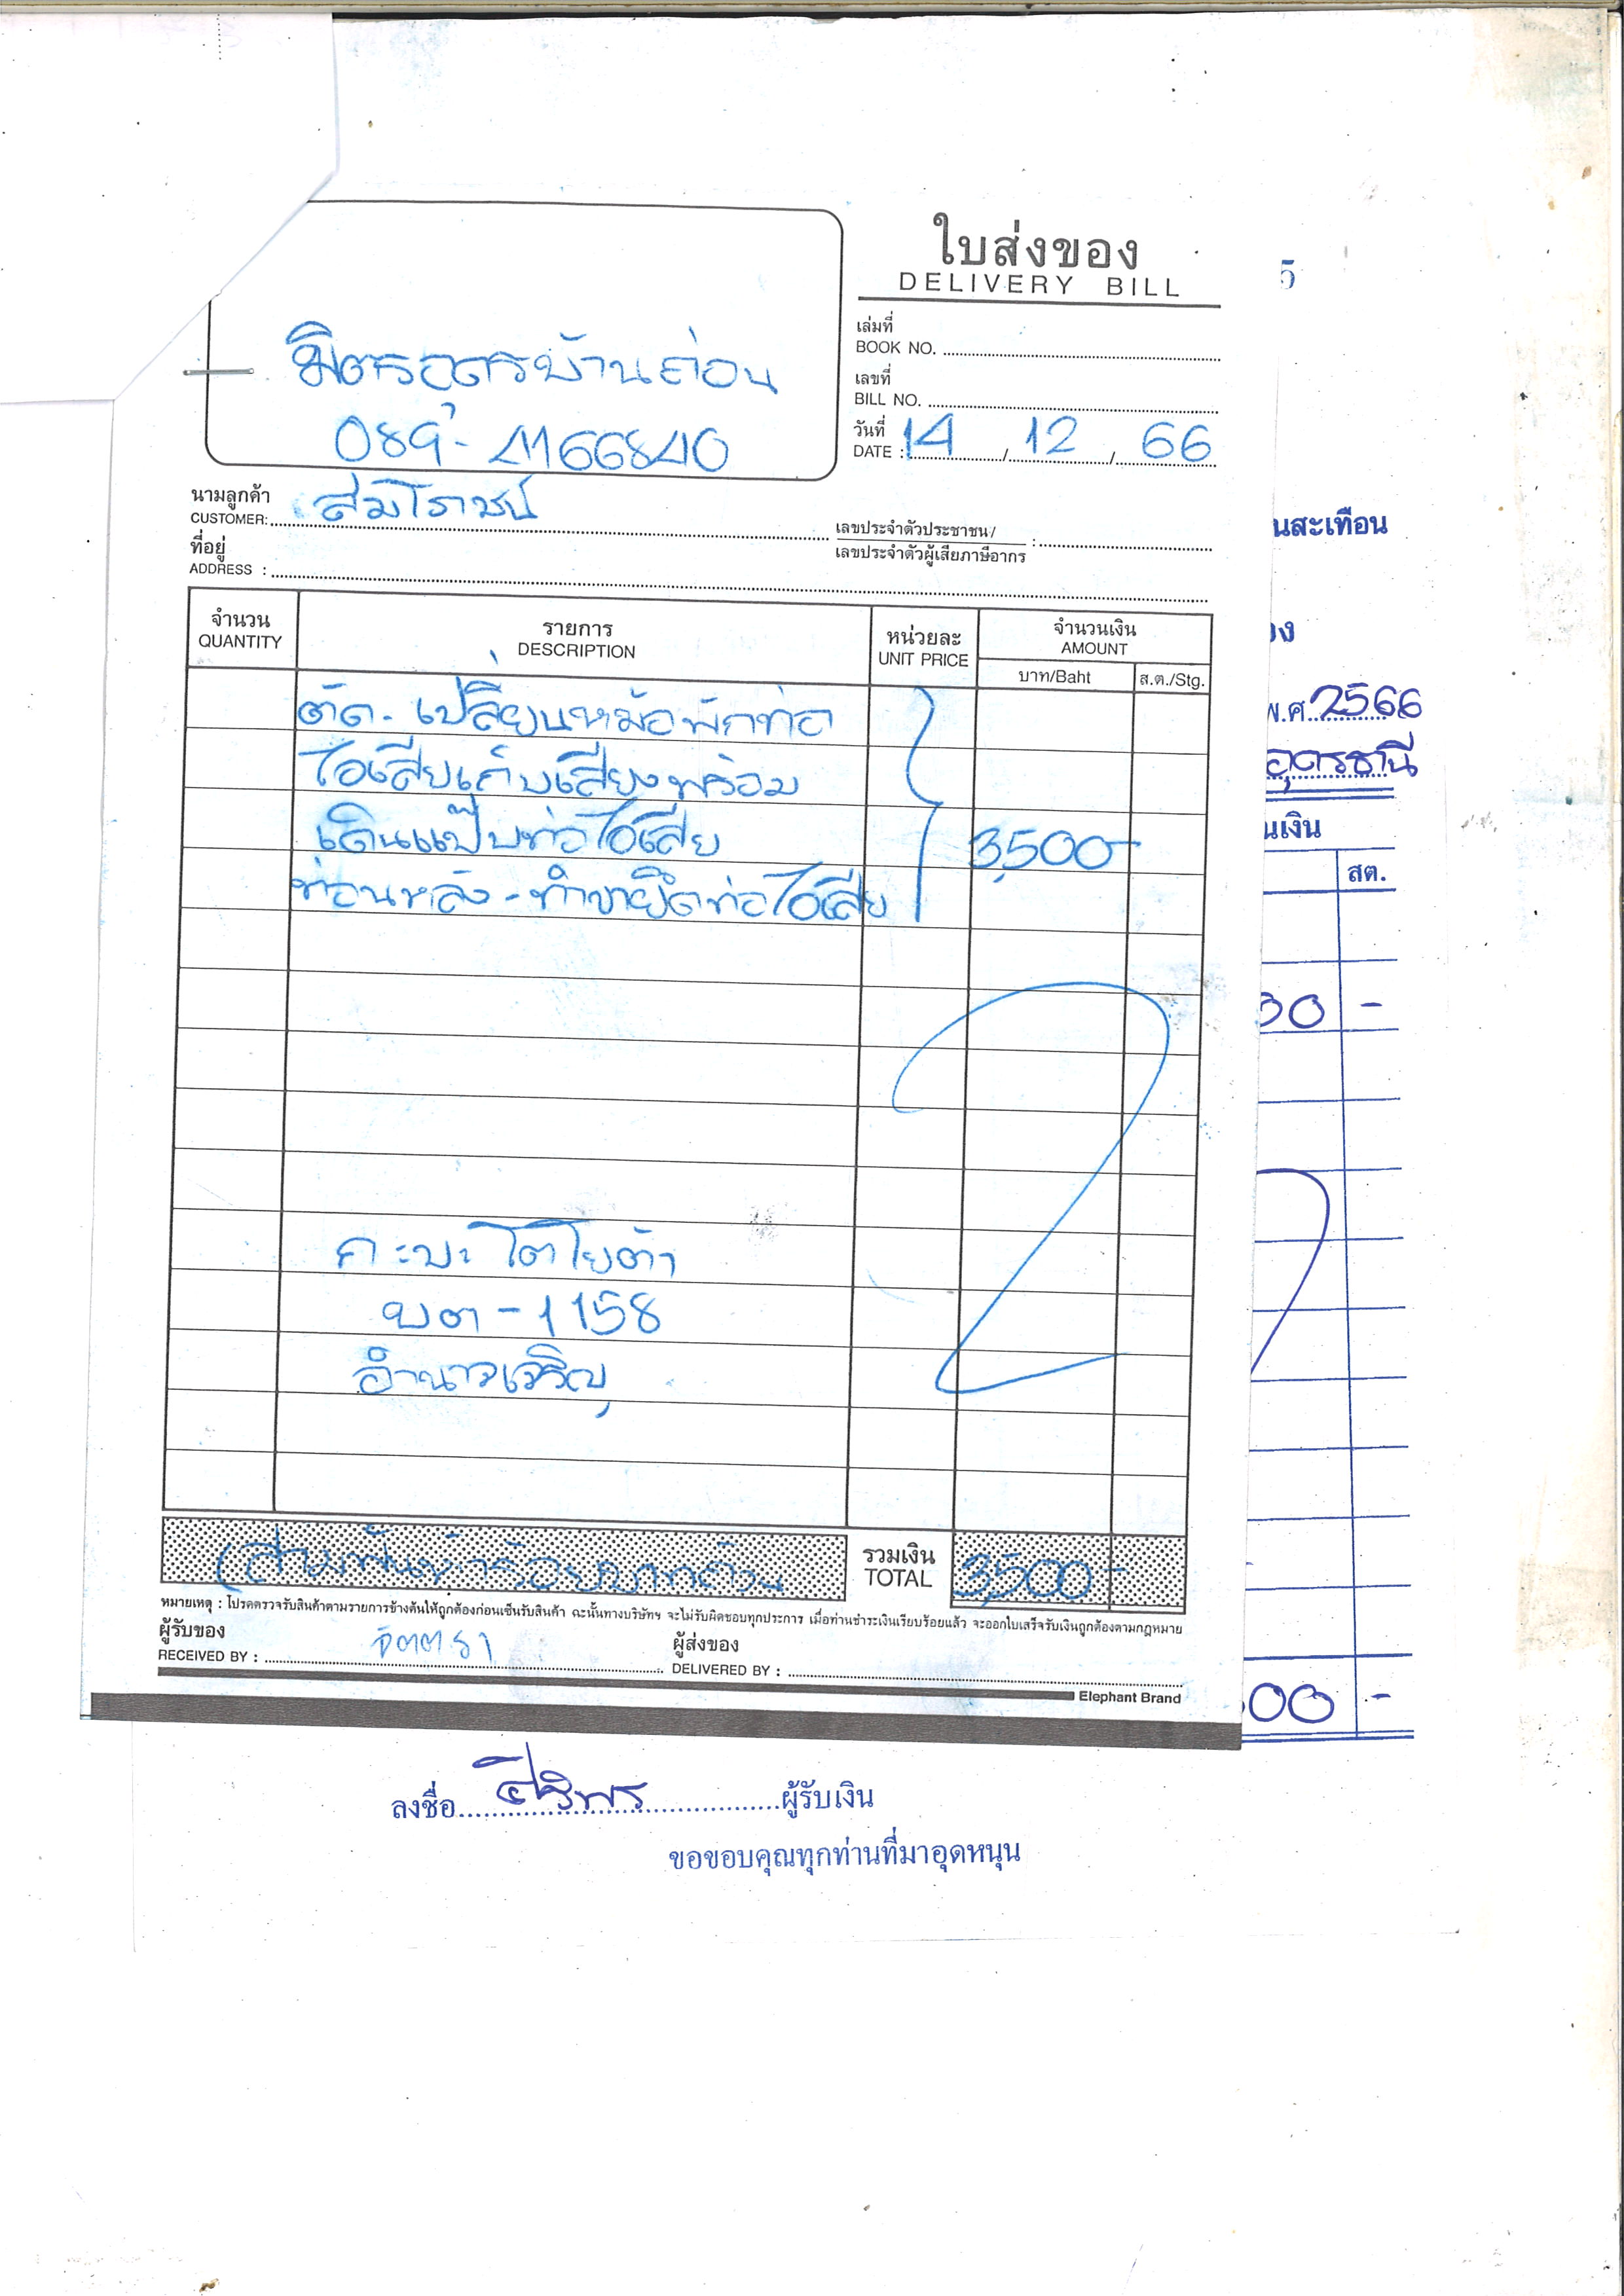 ใบส่งของ
DELIVERY BILL
5
เล่มที่
BOOK NO.
เลขที่
BILL NO.
วันที่
DATE : 14 / 12 / 66
มิตรอุดรบ้านถ่อน
089-4166840
นามลูกค้า
CUSTOMER: สมโภชน์
เลขประจำตัวประชาชน/ :
เลขประจำตัวผู้เสียภาษีอากร
ที่อยู่
ADDRESS :
นสะเทือน
อง
พ.ศ. 2566
อุดรธานี
นเงิน
สต.
จำนวน รายการ หน่วยละ จำนวนเงิน
QUANTITY DESCRIPTION UNIT PRICE AMOUNT
บาท/Baht ส.ต./Stg.
ตัด - เปลี่ยนหม้อพักท่อ
ไอเสียเก็บเสียงพร้อม
เดินแป๊บท่อไอเสีย 3,500-
ท่อนหลัง - ทำขายึดท่อไอเสีย
00 -
กะบะ โตโยต้า
บต - 1158
อำนาจเจริญ
(สามพันห้าร้อยบาทถ้วน รวมเงิน 3,500 -
TOTAL
หมายเหตุ : โปรดตรวจรับสินค้าตามรายการข้างต้นให้ถูกต้องก่อนเซ็นรับสินค้า ฉะนั้นทางบริษัทฯ จะไม่รับผิดชอบทุกประการ เมื่อท่านชำระเงินเรียบร้อยแล้ว จะออกใบเสร็จรับเงินถูกต้องตามกฎหมาย
ผู้รับของ จิตตรา ผู้ส่งของ
RECEIVED BY : DELIVERED BY :
Elephant Brand
00 -
ลงชื่อ ผู้รับเงิน
ขอขอบคุณทุกท่านที่มาอุดหนุน